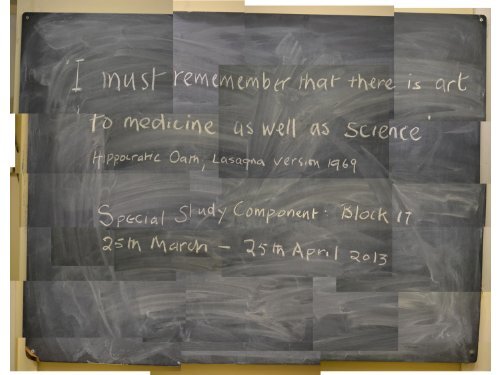 'I must rememember that there is art
to medicine as well as science'
Hippocratic Oath, Lasagna version 1969
Special Study Component: Block 17
25th March - 25th April 2013